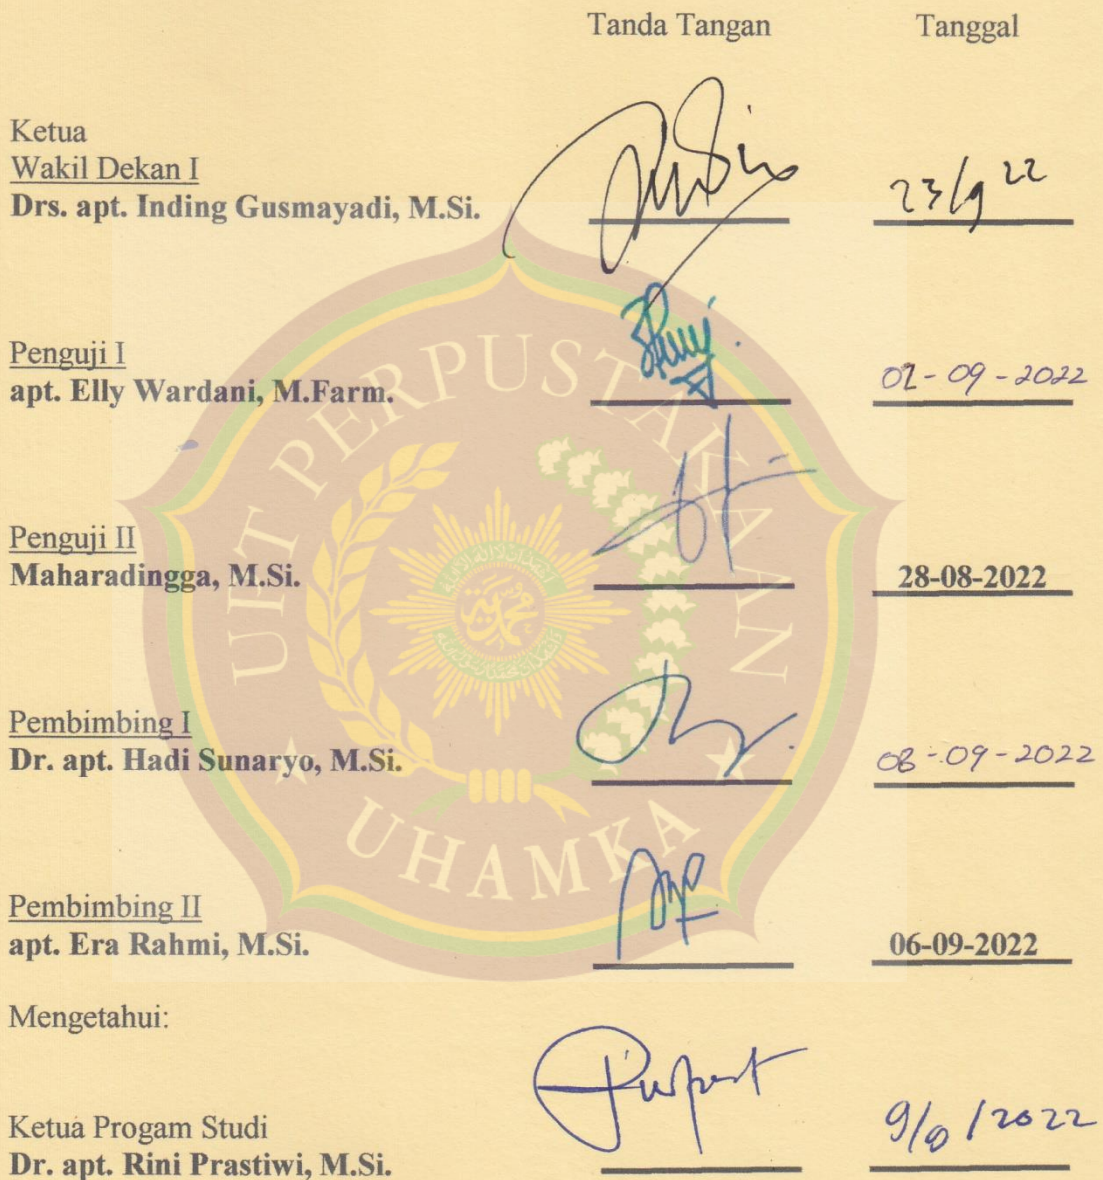 Tanda Tangan Tanggal
Ketua
Wakil Dekan I
Drs. apt. Inding Gusmayadi, M.Si. 23/9 22
Penguji I
apt. Elly Wardani, M.Farm. 02-09-2022
Penguji II
Maharadingga, M.Si. 28-08-2022
Pembimbing I
Dr. apt. Hadi Sunaryo, M.Si. 08-09-2022
Pembimbing II
apt. Era Rahmi, M.Si. 06-09-2022
Mengetahui:
Ketua Progam Studi
Dr. apt. Rini Prastiwi, M.Si. /2022
UPT PERPUSTAKAAN
UHAMKA